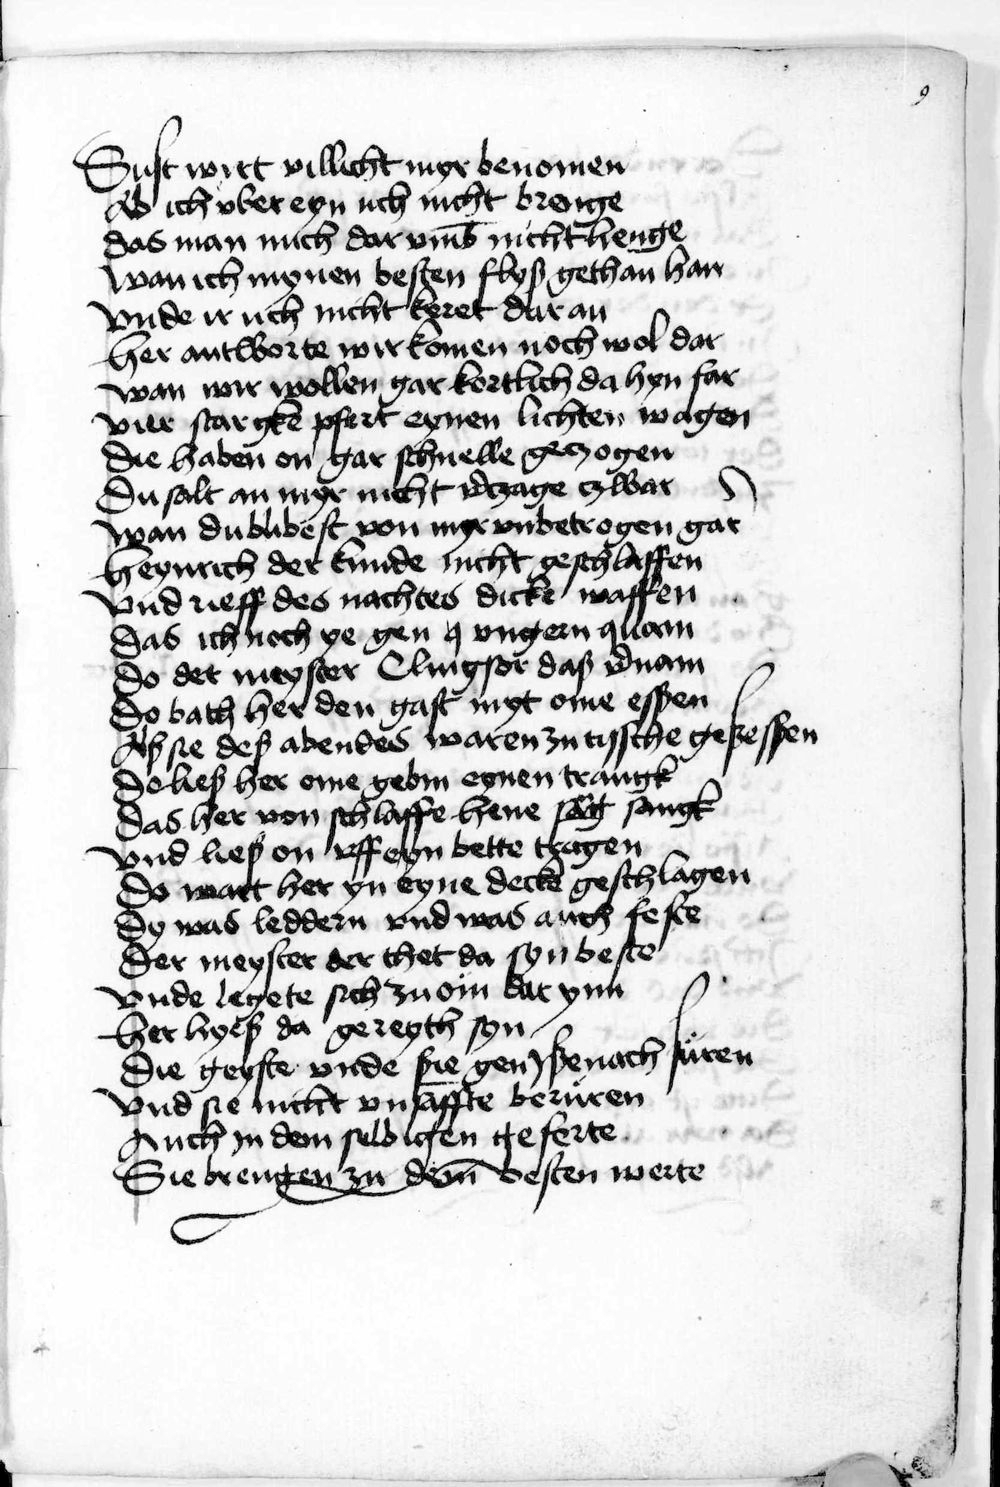 9
Sust wirt villicht myr benomen
Ab ich vber eyn uch nicht brenge
das man mich dar vmb nicht henge
wan ich mynen besten flyß gethan han
vnde ir uch nicht keret dar an
her antworte wir komen noch wol dar
wan wir wollen gar kortlich da hyn far
vier starcke pfert eynen lichten wagen
die haben on gar schnelle geczogen
du salt an myr nicht vczage czwar
wan du blibest von myr vnbetrogen gar
heynrich der kunde nicht geschlaffen
vnd rieff des nachtes dicke waffen
das ich noch ye gen vngern quam
do der meyster Clingsor daß vnam
do bath her den gast myt ome essen
Alß sie deß abendes waren zu tissche geßessen
do ließ her ome gebin eynen trangk
das her von schlaffe hene sangk
vnd ließ on vff eyn bette tragen
do wart her yn eyne decke geschlagen
dy was leddern vnd was auch feste
der meyster der thet da syn beste
vnde legete sich zu om dar ynn
her hyeß da gereyth syn
die geyste vnde sie gen yßenach füren
vnd sie nicht vnsaffte berüren
Auch in dem selbigen geferte
Sie brengen zu dem besten werte